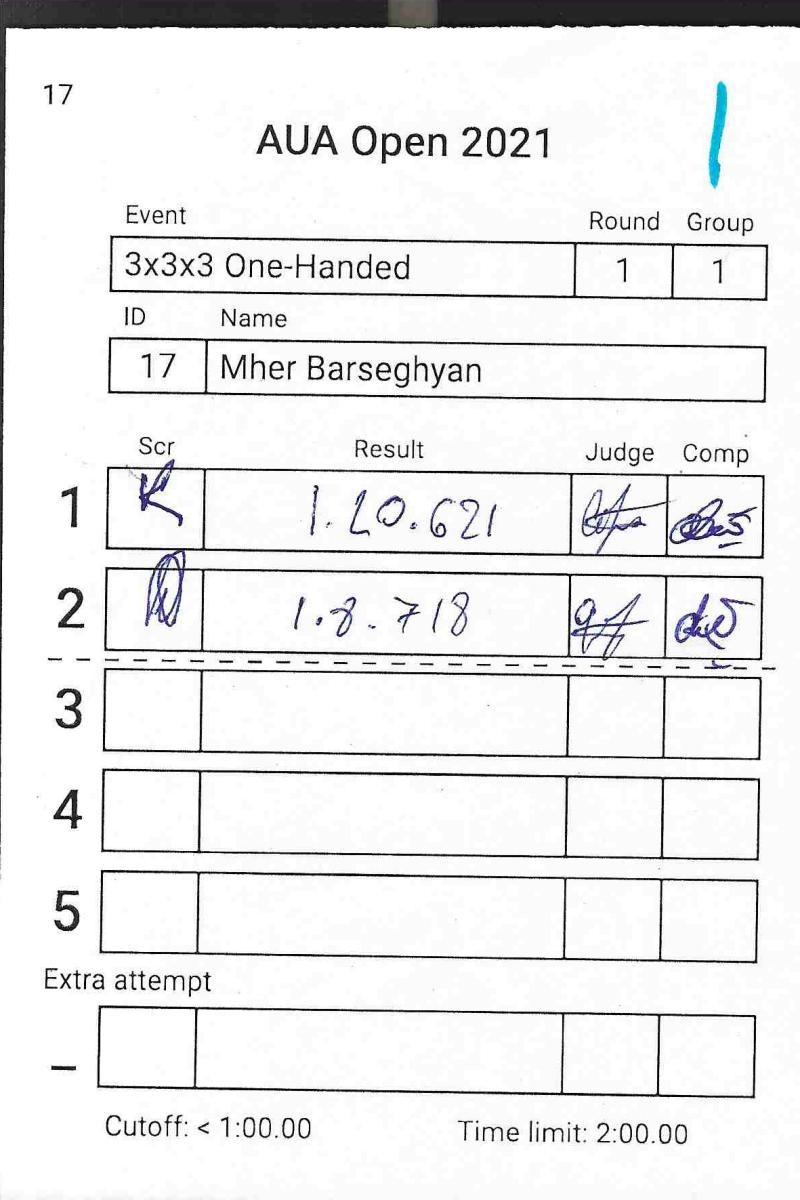 17
AUA Open 2021
Event Round Group
3x3x3 One-Handed 1 1
ID Name
17 Mher Barseghyan
Scr Result Judge Comp
1 1.20.621
2 1.8.718
3
4
5
Extra attempt
_
Cutoff: < 1:00.00 Time limit: 2:00.00